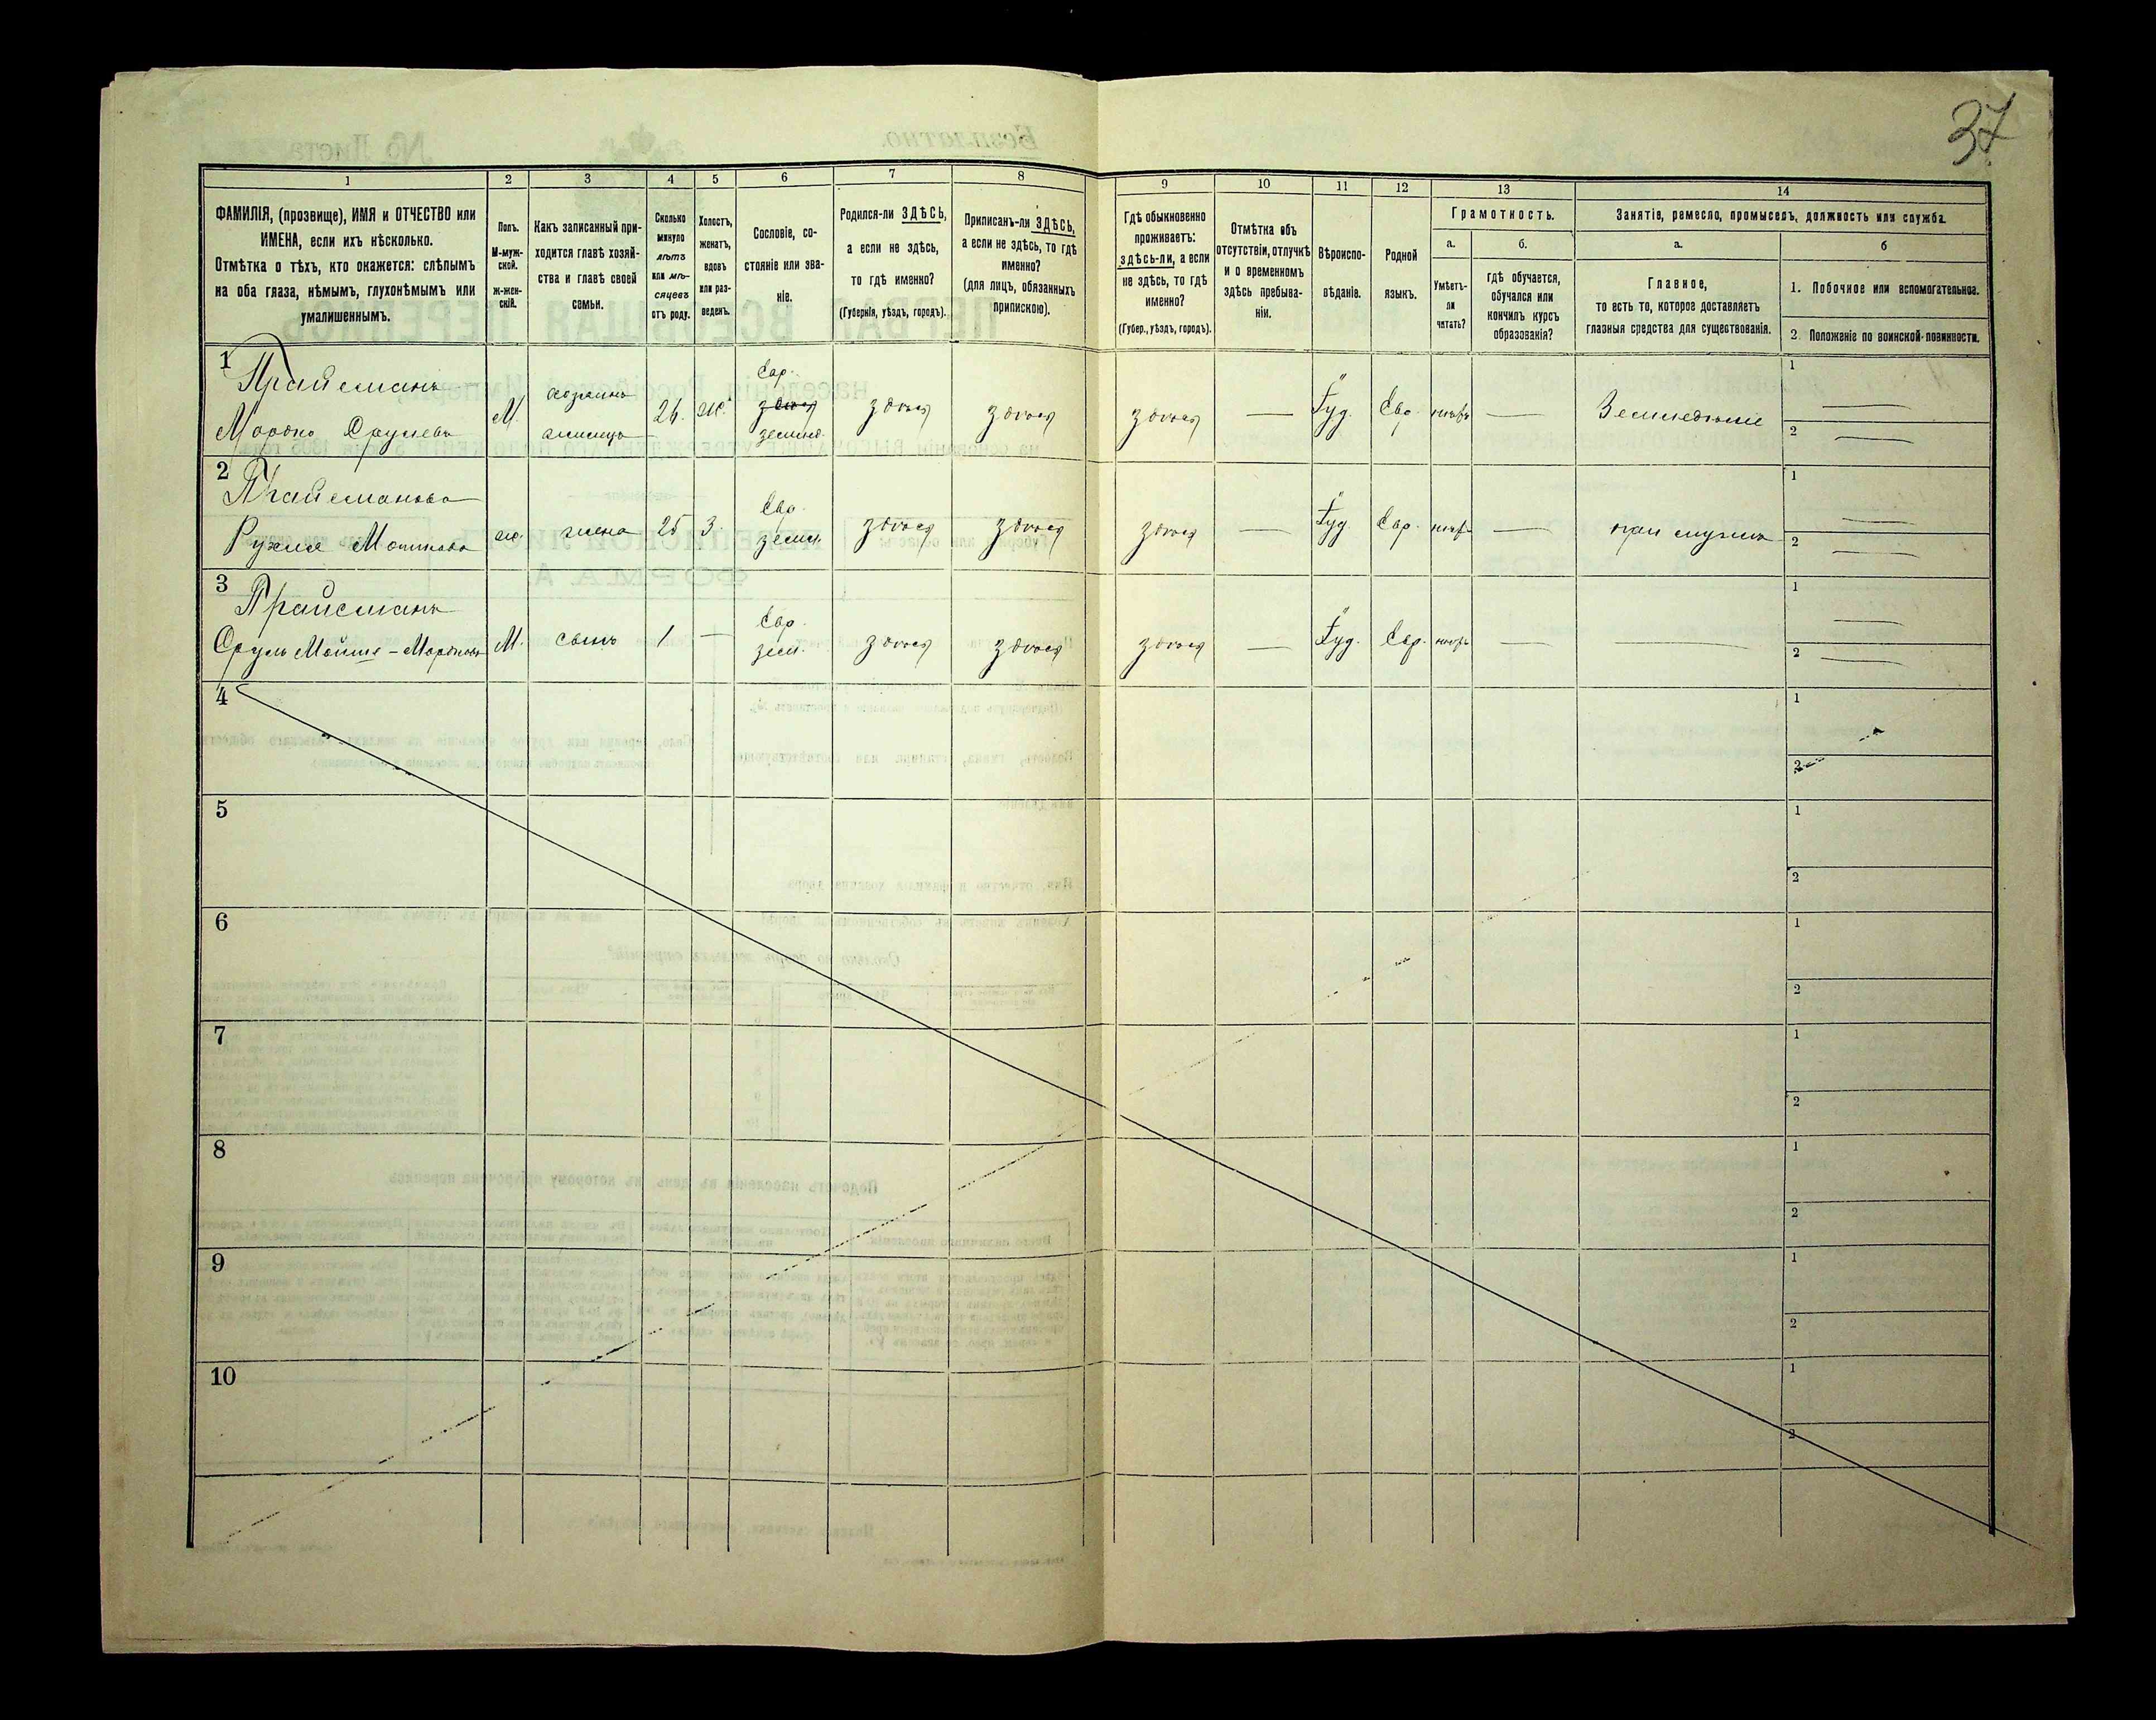 37
1 2 3 4 5 6 7 8 9 10 11 12 13 14
ФАМИЛІЯ, (прозвище), ИМЯ и ОТЧЕСТВО или
ИМЕНА, если ихъ нѣсколько.
Отмѣтка о тѣхъ, кто окажется: слѣпымъ
на оба глаза, нѣмымъ, глухонѣмымъ или
умалишеннымъ.
Полъ.
М-муж-
ской.
ж-жен-
скій.
Какъ записанный при-
ходится главѣ хозяй-
ства и главѣ своей
семьи.
Сколько
минуло
лѣтъ
или мѣ-
сяцевъ
отъ роду.
Холостъ,
женатъ,
вдовъ
или раз-
веденъ.
Сословіе, со-
стояніе или зва-
ніе.
Родился-ли ЗДѢСЬ,
а если не здѣсь,
то гдѣ именно?
(Губернія, уѣздъ, городъ).
Приписанъ-ли ЗДѢСЬ,
а если не здѣсь, то гдѣ
именно?
(для лицъ, обязанныхъ
припискою).
Гдѣ обыкновенно
проживаетъ:
здѣсь-ли, а если
не здѣсь, то гдѣ
именно?
(Губер., уѣздъ, городъ).
Отмѣтка объ
отсутствіи, отлучкѣ
и о временномъ
здѣсь пребыва-
ніи.
Вѣроиспо-
вѣданіе.
Родной
языкъ.
Грамотность.
а.
Умѣетъ-
ли
читать?
б.
гдѣ обучается,
обучался или
кончилъ курсъ
образованія?
Занятіе, ремесло, промыселъ, должность или служба.
а.
Главное,
то есть то, которое доставляетъ
главныя средства для существованія.
б
1. Побочное или вспомогательное.
2 Положеніе по воинской повинности.
1
Прайсманъ
Мордко Срулевъ
М.
хозяинъ
26.
же.
Евр.
здѣсь
здѣсь
здѣсь
здѣсь
Іуд.
Евр.
Земледѣліе
1
2
2
Прайсманова
Рухля
же.
жена
25
3.
Евр.
земл.
здѣсь
здѣсь
здѣсь
Іуд.
Евр.
при мужѣ
1
2
3
Прайсманъ
Сруль Мойше-Мордковъ
М.
сынъ
1
Евр.
земл.
здѣсь
здѣсь
здѣсь
Іуд.
Евр.
1
2
4
1
2
5
1
2
6
1
2
7
1
2
8
1
2
9
1
2
10
1
2